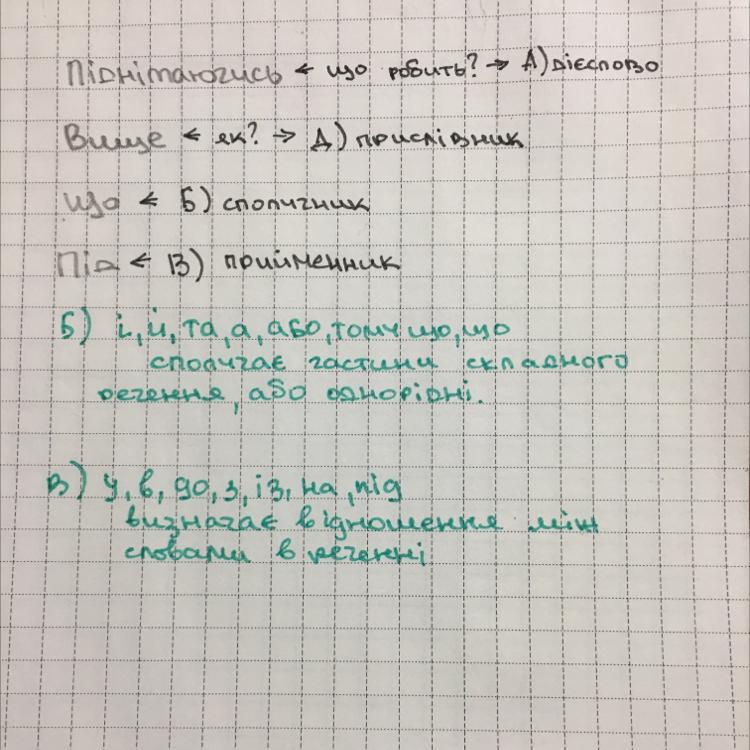 Піднімаючись ← що робить? → А) дієслово
Вище ← як? → Д) прислівник
що ← Б) сполучник
Під ← В) прийменник
Б) і, й, та, а, або, тому що, що
сполучає частини складного
речення, або однорідні.
В) у, в, до, з, із, на, під
визначає відношення між
словами в реченні